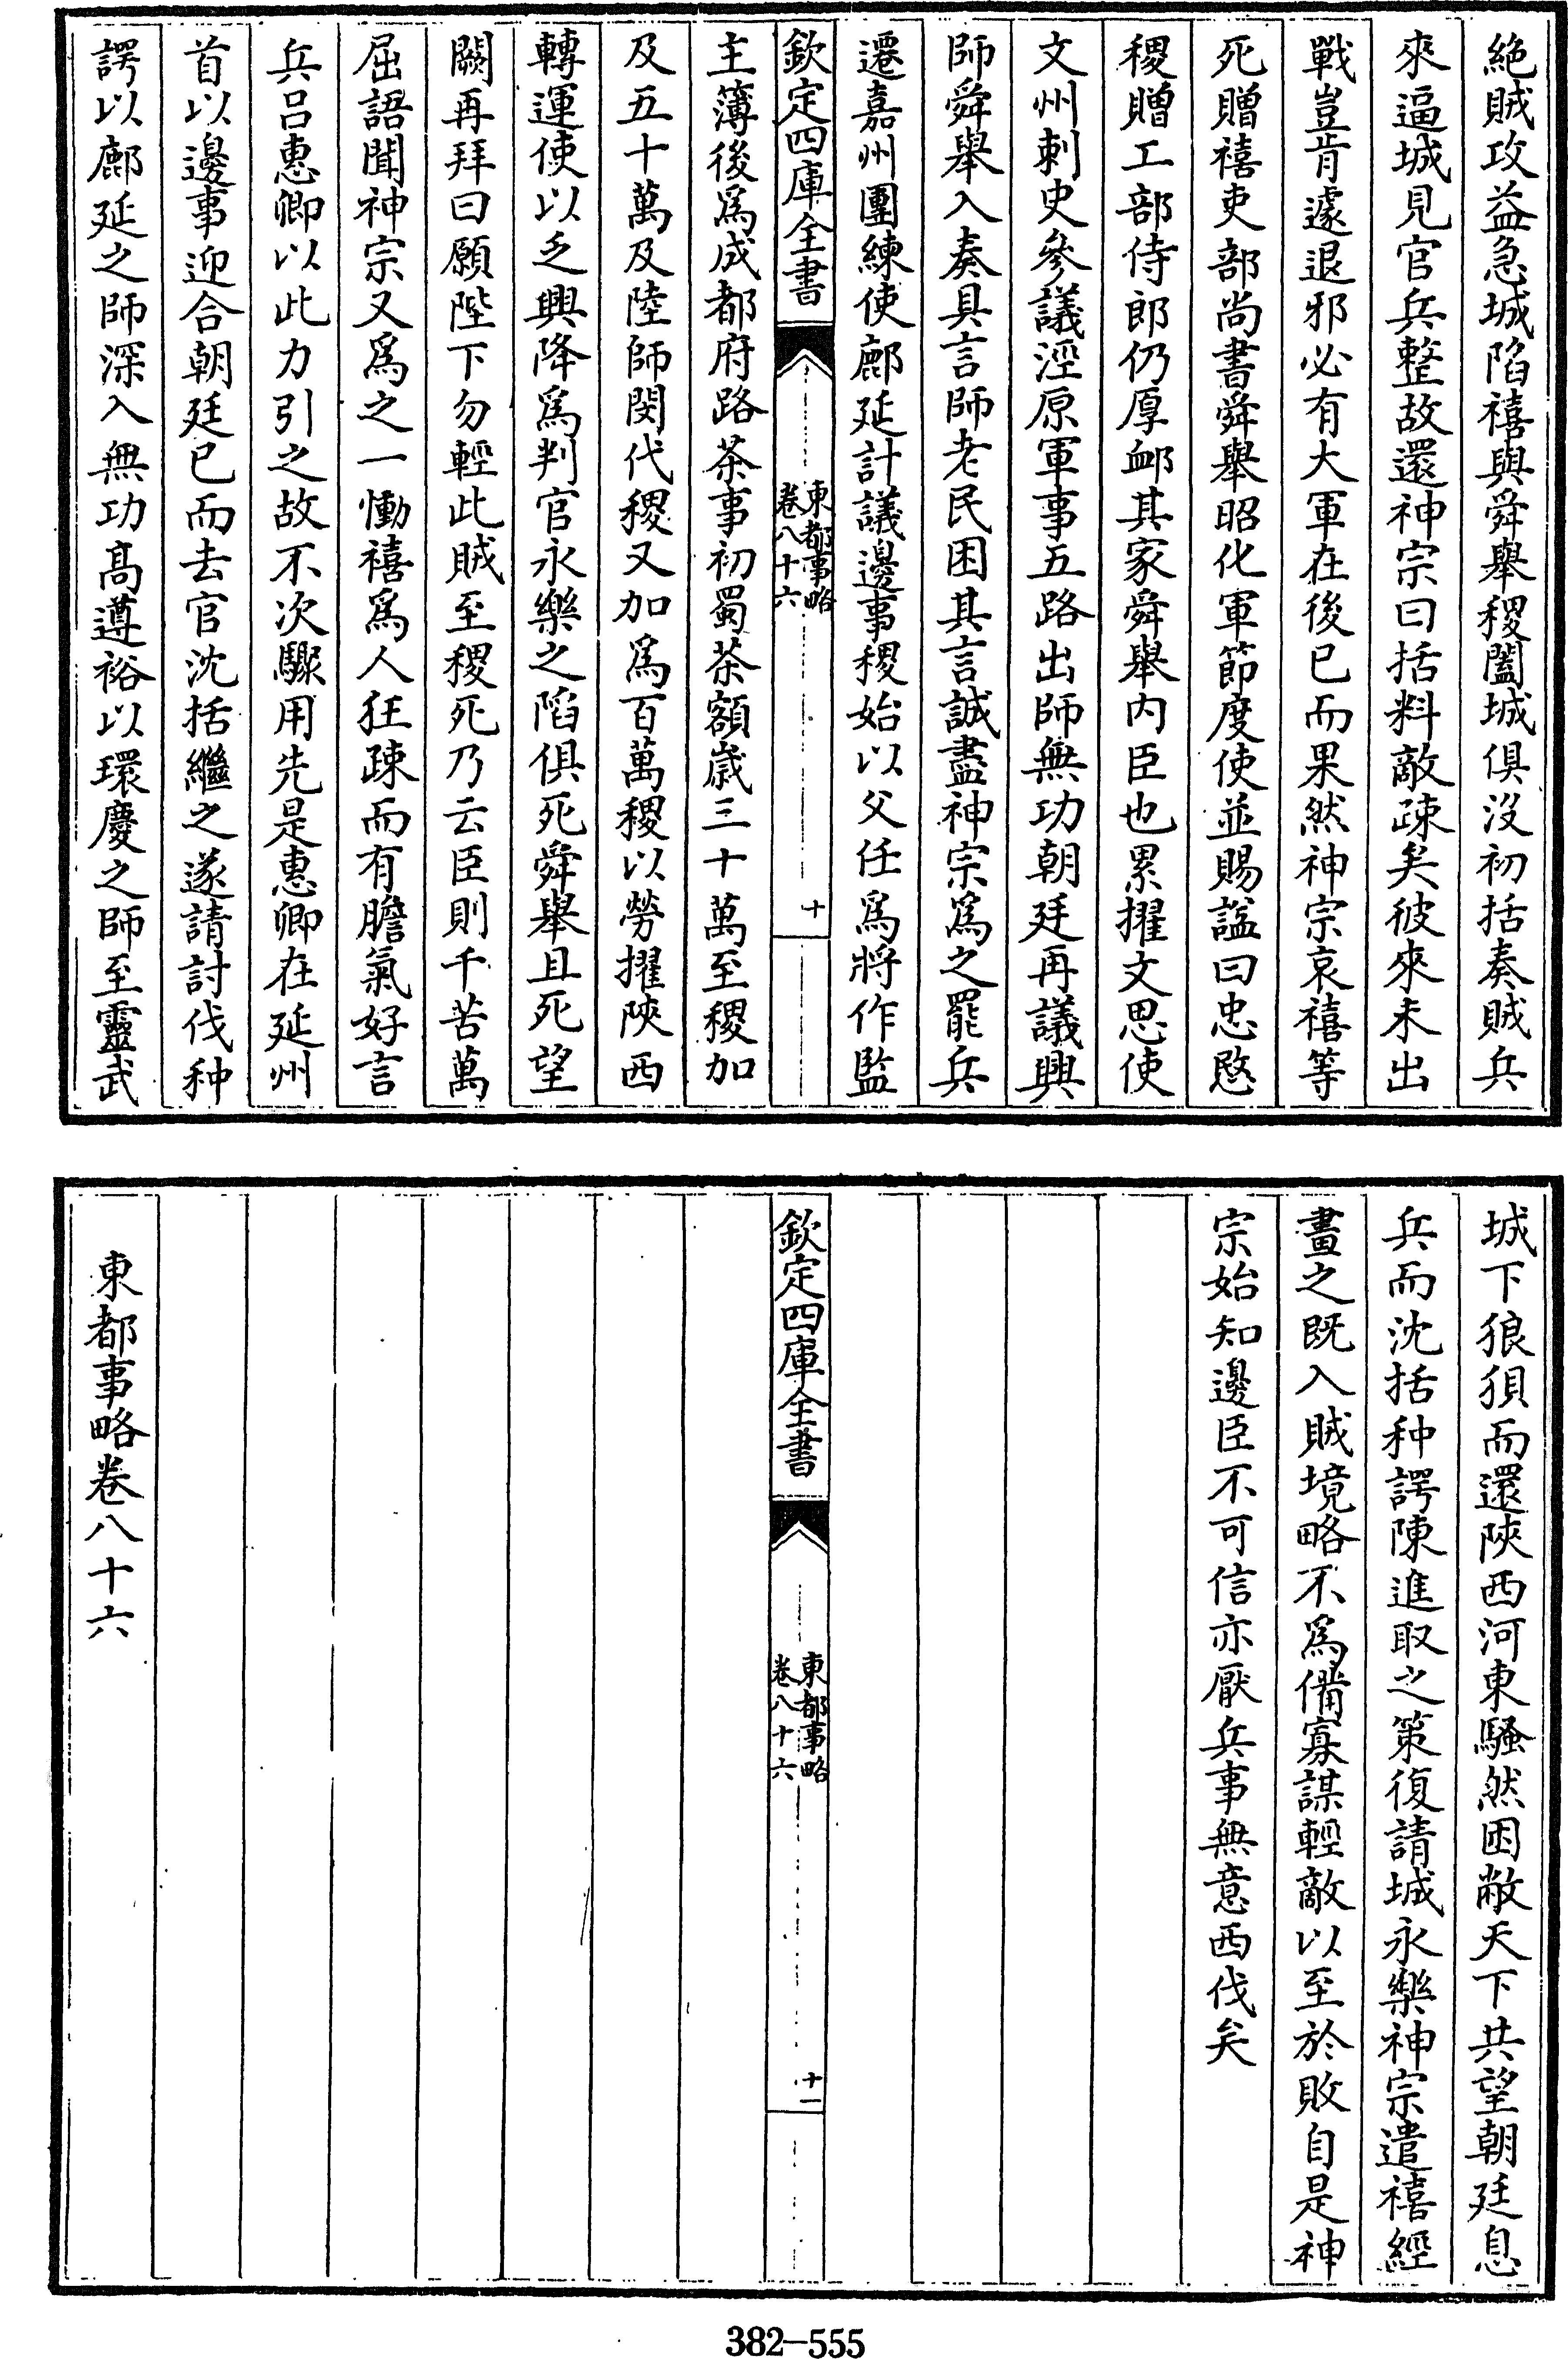 絶賊攻益急城陷禧與舜舉稷闔城俱沒初括奏賊兵
來逼城見官兵整故還神宗曰括料敵疎矣彼來未出
戰豈肯遽退邪必有大軍在後已而果然神宗哀禧等
死贈禧吏部尚書舜舉昭化軍節度使並賜諡曰忠愍
稷贈工部侍郎仍厚䘏其家舜舉内臣也累擢文思使
文州刺史參議涇原軍事五路出師無功朝廷再議興
師舜舉入奏具言師老民困其言誠盡神宗為之罷兵
遷嘉州團練使鄜延計議邊事稷始以父任為將作監
欽定四庫全書
東都事略
卷八十六
十
主簿後為成都府路茶事初蜀茶額歲三十萬至稷加
及五十萬及陸師閔代稷又加為百萬稷以勞擢陝西
轉運使以乏興降為判官永樂之陷俱死舜舉且死望
闕再拜曰願陛下勿輕此賊至稷死乃云臣則千苦萬
屈語聞神宗又為之一慟禧為人狂疎而有膽氣好言
兵呂惠卿以此力引之故不次驟用先是惠卿在延州
首以邊事迎合朝廷已而去官沈括繼之遂請討伐种
諤以鄜延之師深入無功高遵裕以環慶之師至靈武
城下狼狽而還陝西河東騷然困敝天下共望朝廷息
兵而沈括种諤陳進取之策復請城永樂神宗遣禧經
畫之既入賊境略不為備寡謀輕敵以至於敗自是神
宗始知邊臣不可信亦厭兵事無意西伐矣
欽定四庫全書
東都事略
卷八十六
十一
東都事略卷八十六
382-555